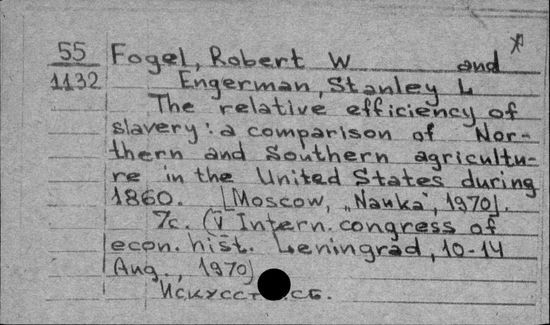 55 Fogel, Robert W and
1132 Engerman, Stanley L
The relative efficiency of
slavery: a comparison of Nor-
thern and Southern agricultu-
re in the United States during
1860. [Moscow, „Nauka“, 1970].
7c. (V Intern. congress of
econ. hist. Leningrad, 10-14
Aug., 1970)